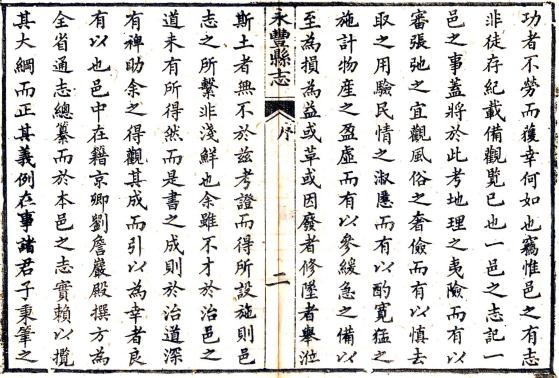 功者不勞而獲幸何如也竊惟邑之有志
非徒存紀載備觀覽已也一邑之志記一
邑之事蓋將於此考地理之夷險而有以
審張弛之宜觀風俗之奢儉而有以慎去
取之用驗民情之淑慝而有以酌寬猛之
施計物產之盈虛而有以參緩急之備以
至為損為益或革或因廢者修墜者舉涖
永豐縣志
序
二
斯土者無不於茲考證而得所設施則邑
志之所繫非淺鮮也余雖不才於治邑之
道未有所得然而是書之成則於治道深
有裨助余之得觀其成而引以為幸者良
有以也邑中在籍京卿劉詹巖殿撰方為
全省通志總纂而於本邑之志實賴以攬
其大綱而正其義例在事諸君子秉筆之